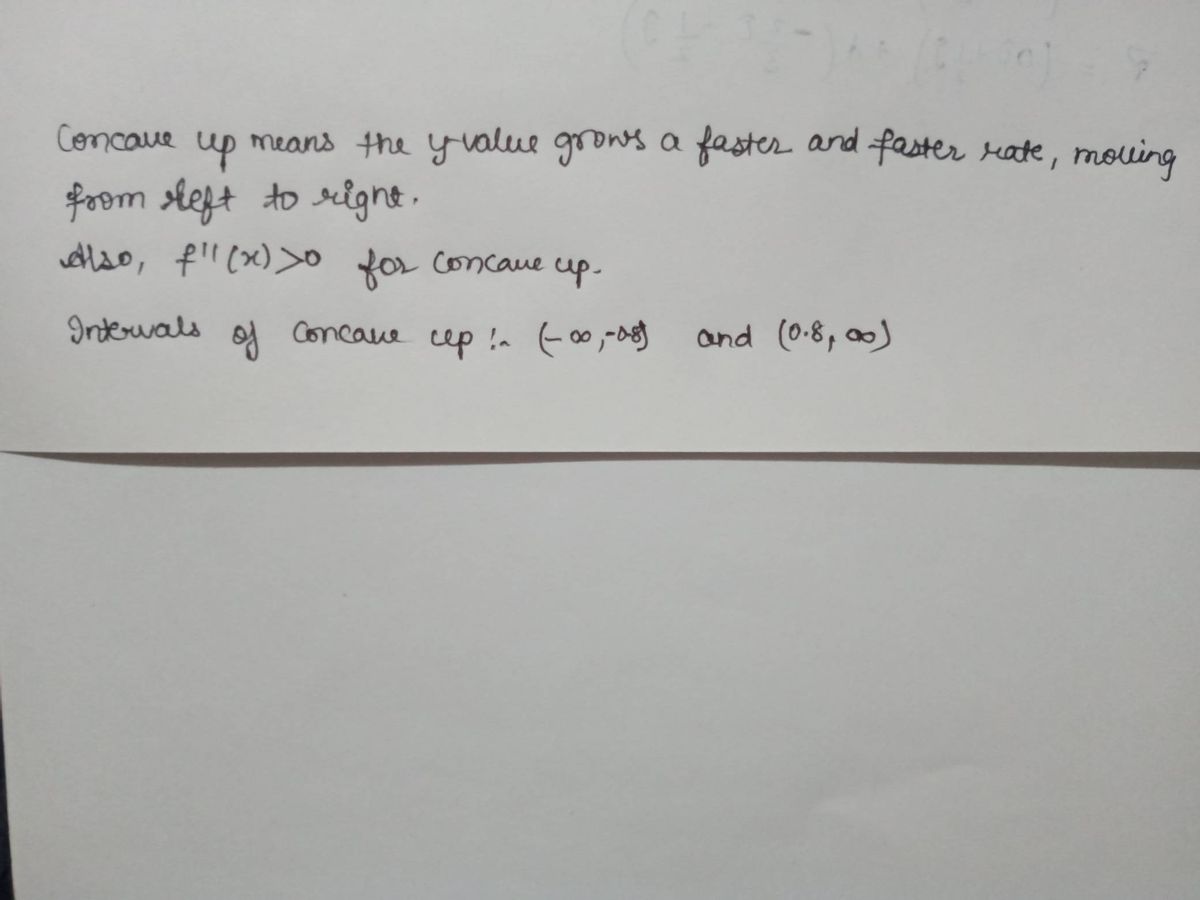 Concave up means the y-value grows a faster and faster rate, moving
from left to right.
Also, f''(x)>0 for concave up.
Intervals of concave up :- (-∞,-0.8) and (0.8, ∞)